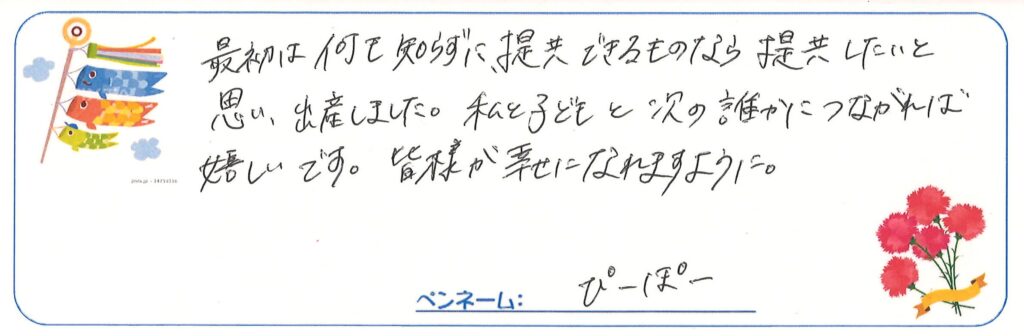 最初は何も知らずに、提供できるものなら提供したいと
思い、出産しました。私と子どもと次の誰かにつながれば
嬉しいです。皆様が幸せになれますように。
ペンネーム: ぴーぽー